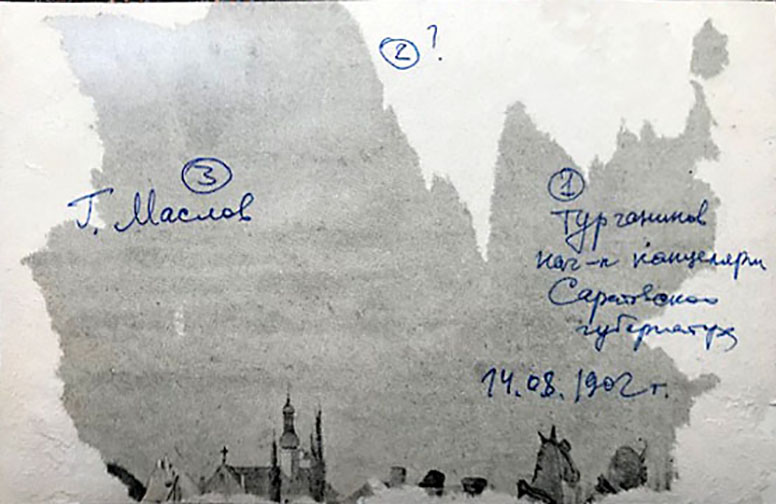 2 ?
3
Г. Маслов
1
Турганинов
нач-к канцелярии
Саратовской
губернатура
14.08.1902 г.